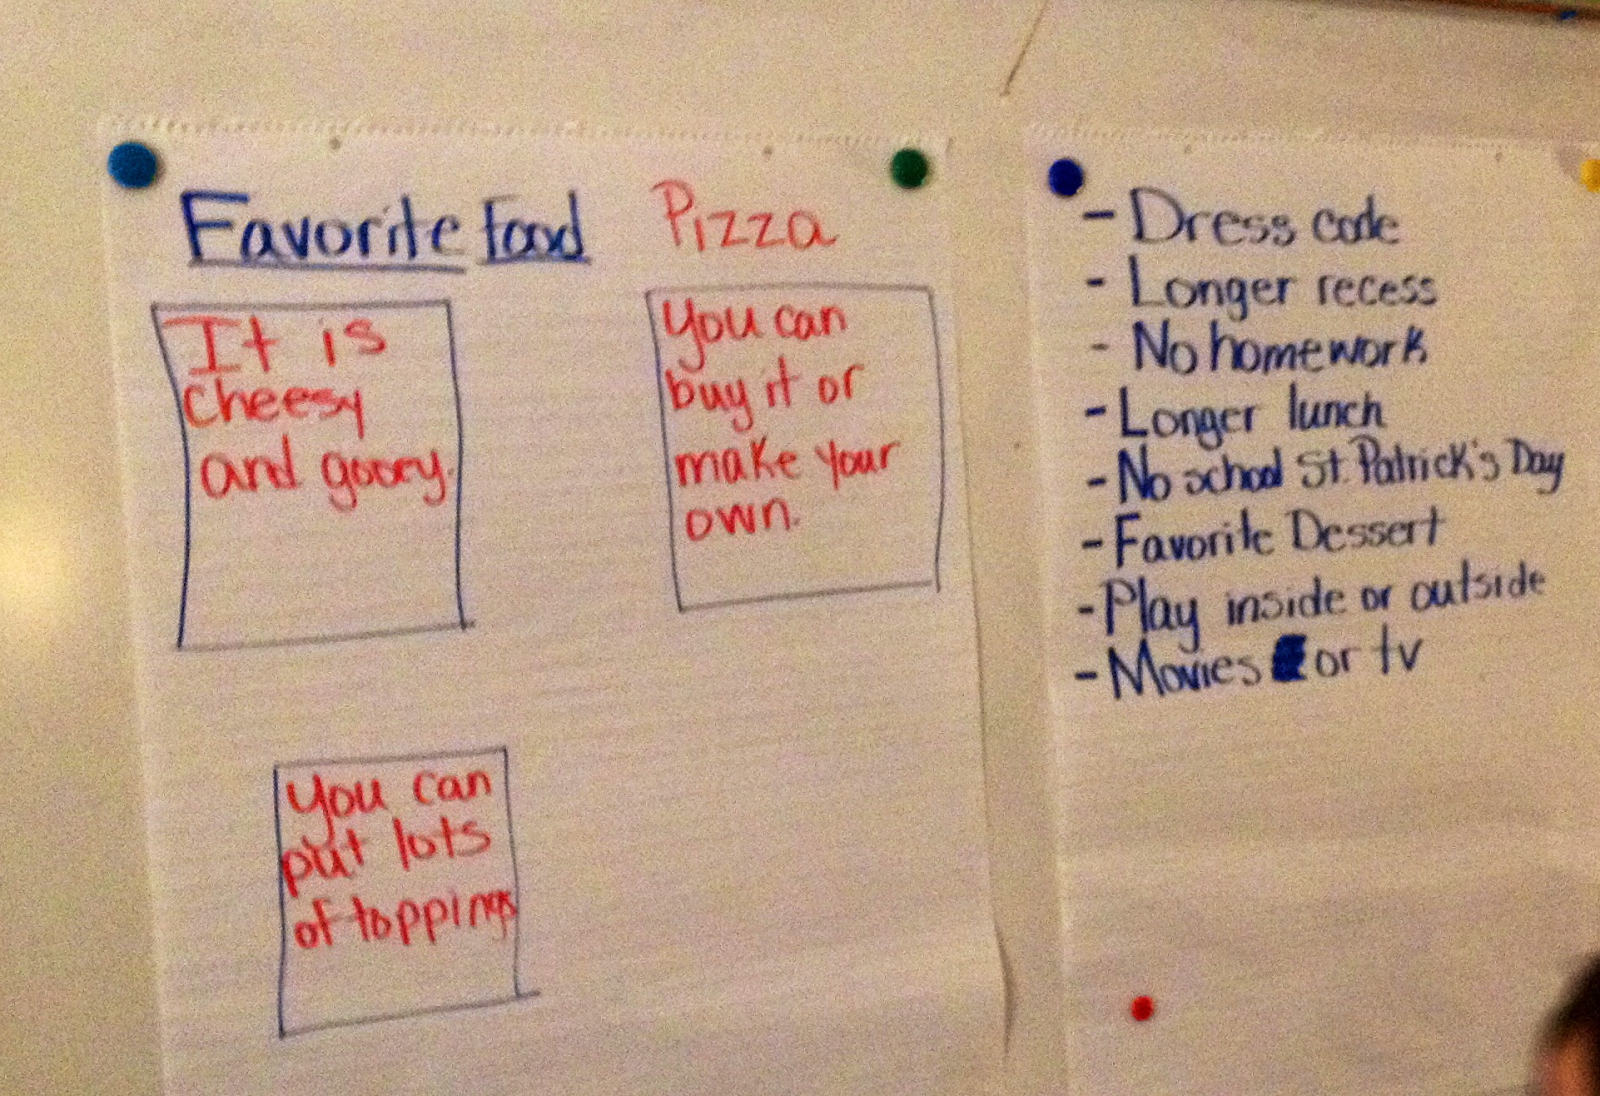 Favorite Food Pizza
It is
cheesy
and gooey.
You can
buy it or
make your
own.
You can
put lots
of toppings
- Dress code
- Longer recess
- No homework
- Longer lunch
- No school St. Patrick's Day
- Favorite Dessert
- Play inside or outside
- Movies or tv